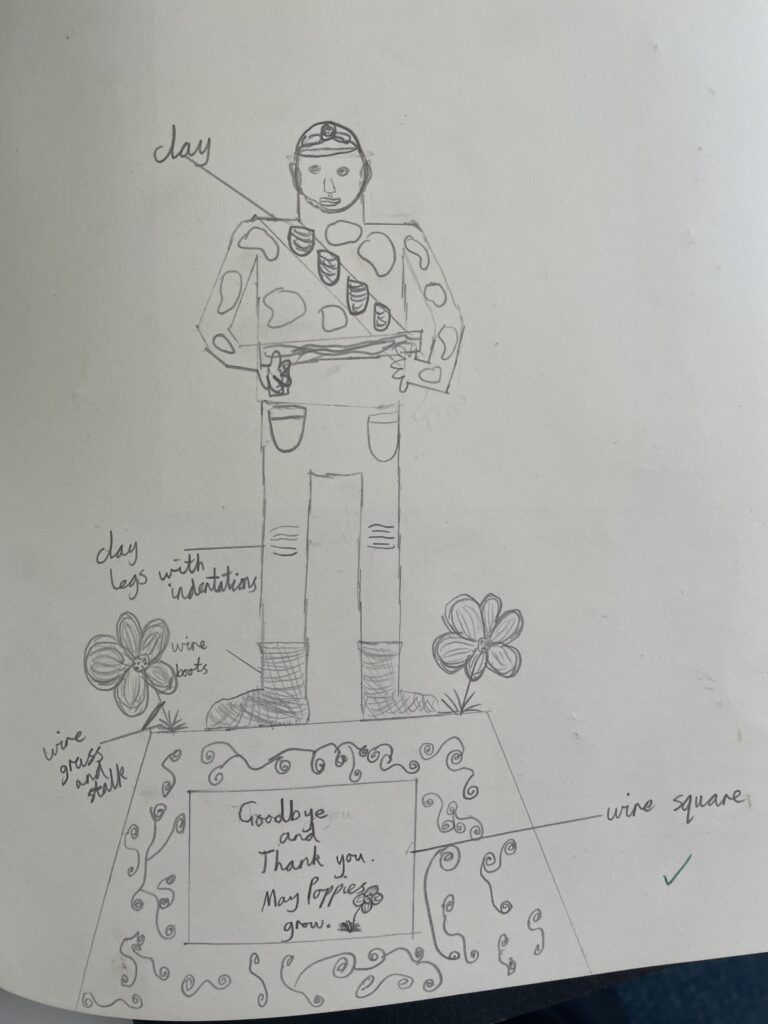 clay
clay
legs with
indentations
wire
boots
wire
grass
and
stalk
wire square
Goodbye
and
Thank you.
May Poppies
grow.